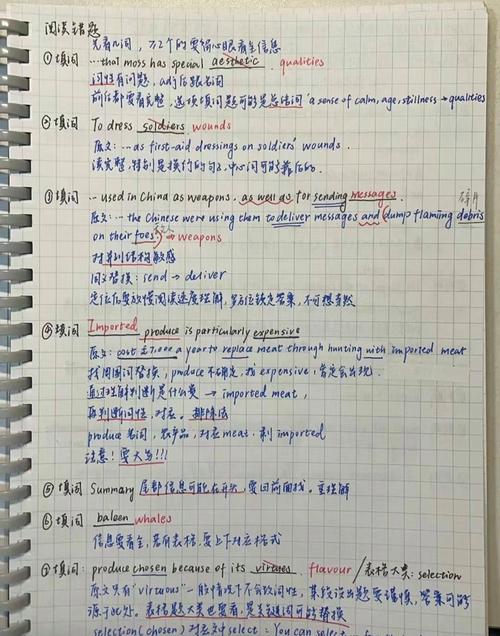 阅读错题
先看n词，
①填词 ...that moss has special aesthetic. qualities
词性有问题，adj后跟名词
前后都要看完整，选项填词题可能是总结词 'a sense of calm, age, stillness → qualities
②填词 To dress soldiers wounds
原文：... as first-aid dressings on soldiers' wounds.
读完整，特别是换行的句子，中心词可能靠后的.
③填词 .. used in China as weapons, as well as for sending messages.
碎片
原文：... the Chinese were using them to deliver messages and (dump flaming debris
on their foes.) → weapons
敌人
对并列结构敏感
同义替换：send → deliver
定位后要放慢阅读速度理解，多方位锁定答案，不可想当然
④填词 Imported produce is particularly expensive
原文：cost £7,000 a year to replace meat through hunting with imported meat
找同词替换，produce不确定，找expensive，肯定会出现.
通过理解判断是什么贵 → imported meat,
再判断词性，对应。排除法
produce名词，农产品，对应meat. 剩imported
注意！要大写!!!
⑤填词 Summary 尾部信息可能在开头，要回前面找。重理解
⑥填词 baleen whales
信息要看全，若有表格，要上下对应格式
⑦填词：produce chosen because of its virtues. flavour / 表格大类：selection
原文只有"virtuous" 一般情况下不会改词性，某段没出题要谨慎，答案可能
源于此处。表格题大类也要看，是关键词可能替换
selection (chosen) 对应文中select：You can select